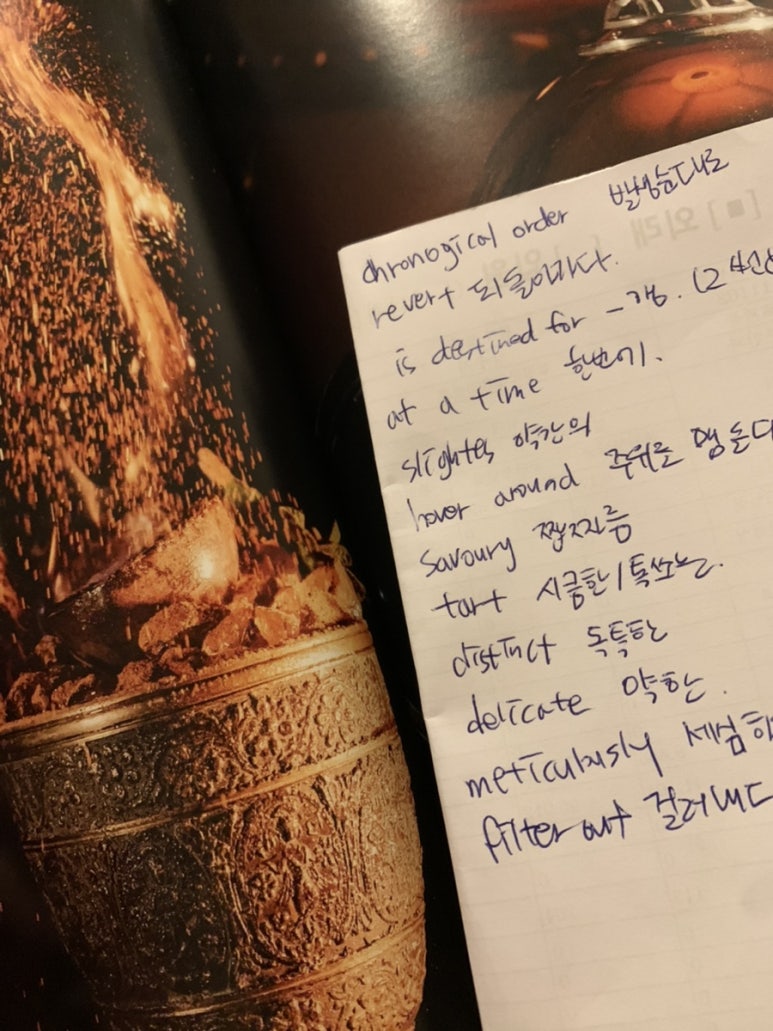 chronogical order 발생순대로
revert 되돌아가다.
is destined for -행. (2
at a time 한번에.
slightes 약간의
hover around 주위를 맴돈다
savoury 짭짜름
tart 시큼한/톡쏘는.
distinct 독특한
delicate 약한.
meticulusly 세심하
filter out 걸러내다